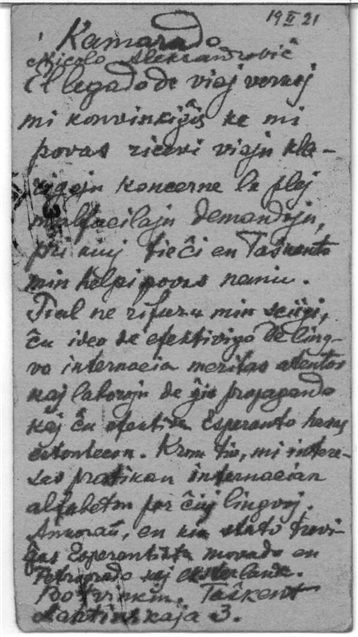 19 II 21
Kamarado
Nicolo Aleksandroviĉ
El legado de viaj verkoj
mi konvinkiĝis ke mi
povas ricevi viajn kla-
rigojn koncerne la plej
malfacilajn demandojn,
pri kiuj tieĉi en Taŝkento
min helpi povas neniu.
Tial ne rifuzu min sciigi,
ĉu ideo de efektivigo de ling-
vo internacia meritas atentos
kaj laborojn de ĝia propagando
kaj ĉu efektive Esperanto havas
estontecon. Krom tio, mi intere-
sas pratikan internacian
alfabeton por ĉiuj lingvoj.
Ankoraŭ, en kia stato trovi-
ĝas Esperantista movado en
Petrogrado kaj eksterlande.
Taŝkent
3.